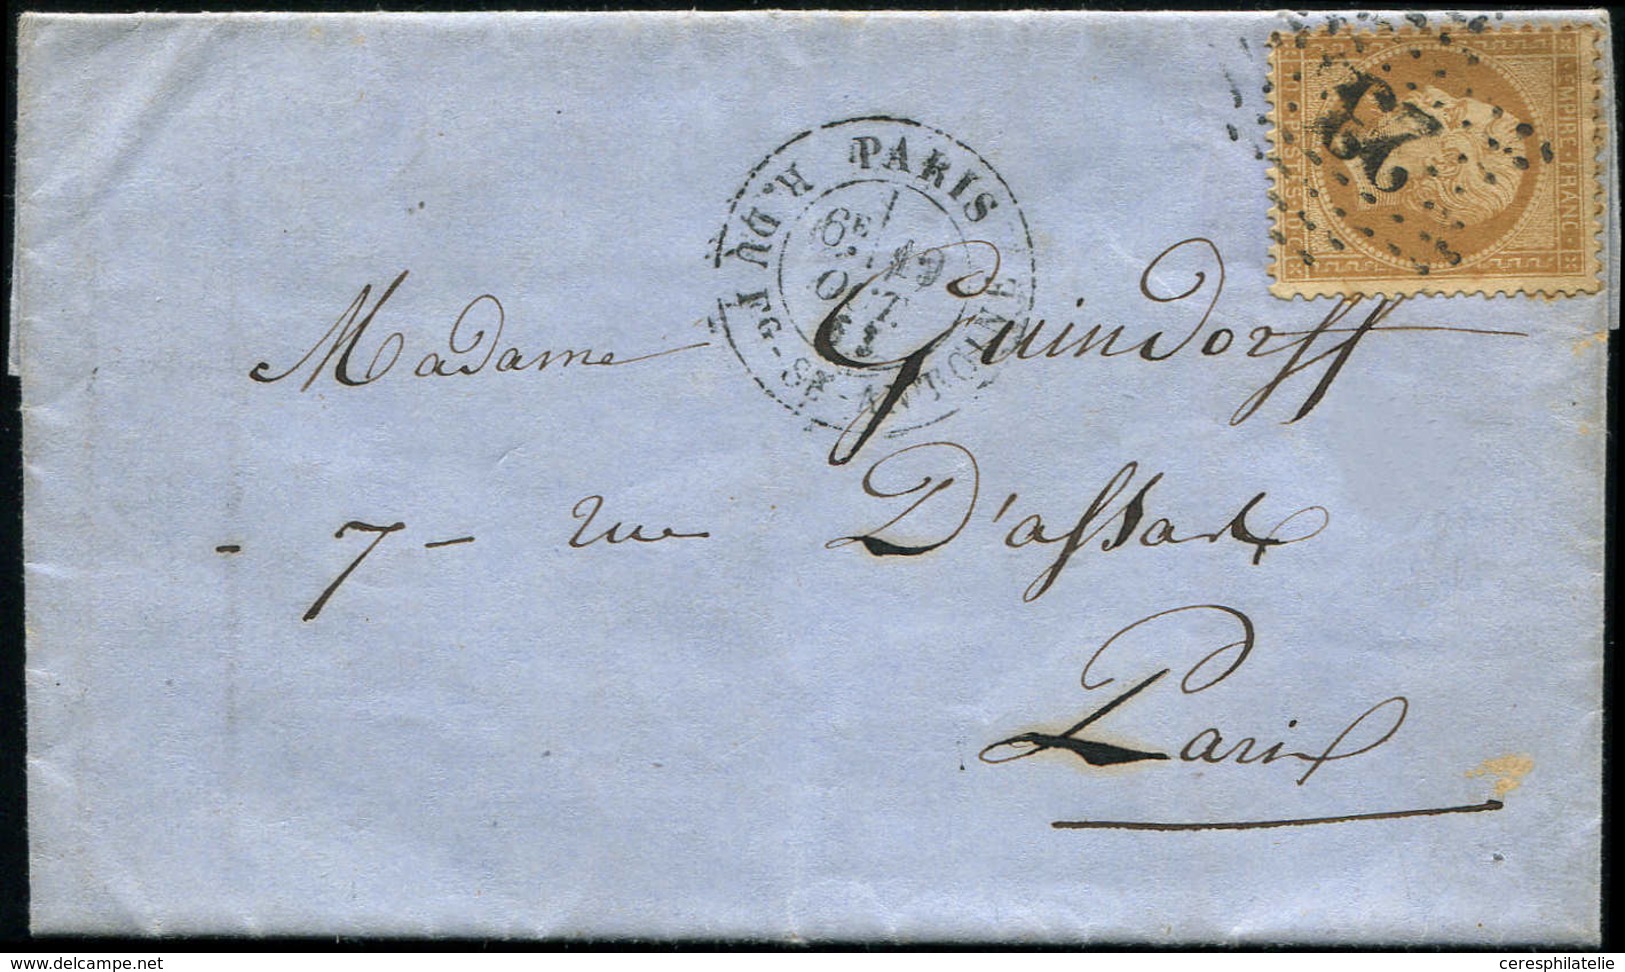 EMPIRE FRANC
POSTES
23
PARIS R. DU FG-ST-ANTOINE
6E
19
OCT
Madame Guindorff
- 7 - rue D'assas
Paris
www.delcampe.net
ceresphilatelie